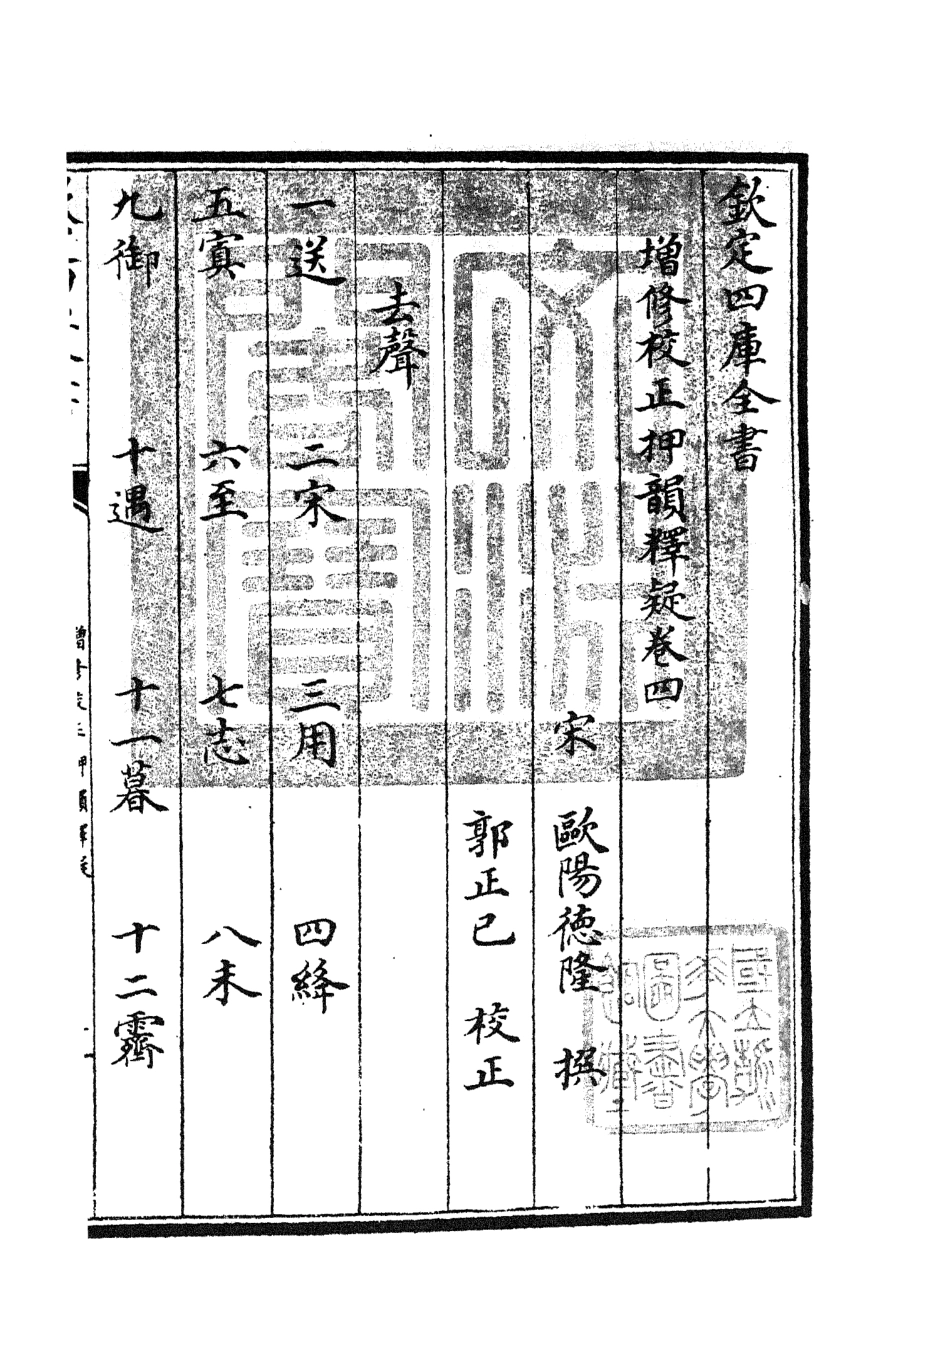 欽定四庫全書
增修校正押韻釋疑卷四
宋 歐陽德隆 撰
郭正已 校正
去聲
一送 二宋 三用 四絳
五寘 六至 七志 八未
九御 十遇 十一暮 十二霽
增修校正押韻釋疑